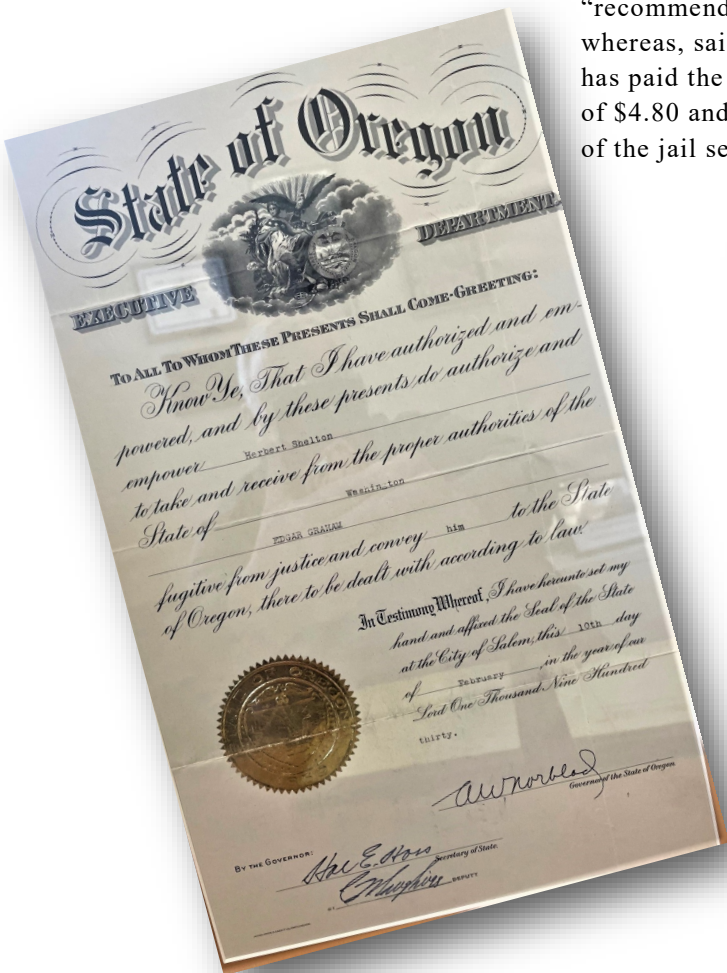 “recommend
whereas, sai
has paid the
of $4.80 and
of the jail se
State of Oregon
EXECUTIVE DEPARTMENT.
TO ALL TO WHOM THESE PRESENTS SHALL COME-GREETING:
Know Ye, That I have authorized and em-
powered, and by these presents do authorize and
empower Herbert Shelton
to take and receive from the proper authorities of the
State of Washin ton
EDGAR GRAHAM
fugitive from justice and convey him to the State
of Oregon, there to be dealt with according to law.
In Testimony Whereof, I have hereunto set my
hand and affixed the Seal of the State
at the City of Salem, this 10th day
of February in the year of our
Lord One Thousand Nine Hundred
thirty.
AW Norblad
Governor of the State of Oregon
BY THE GOVERNOR:
Hal E. Hoss
Secretary of State.
BY DEPUTY